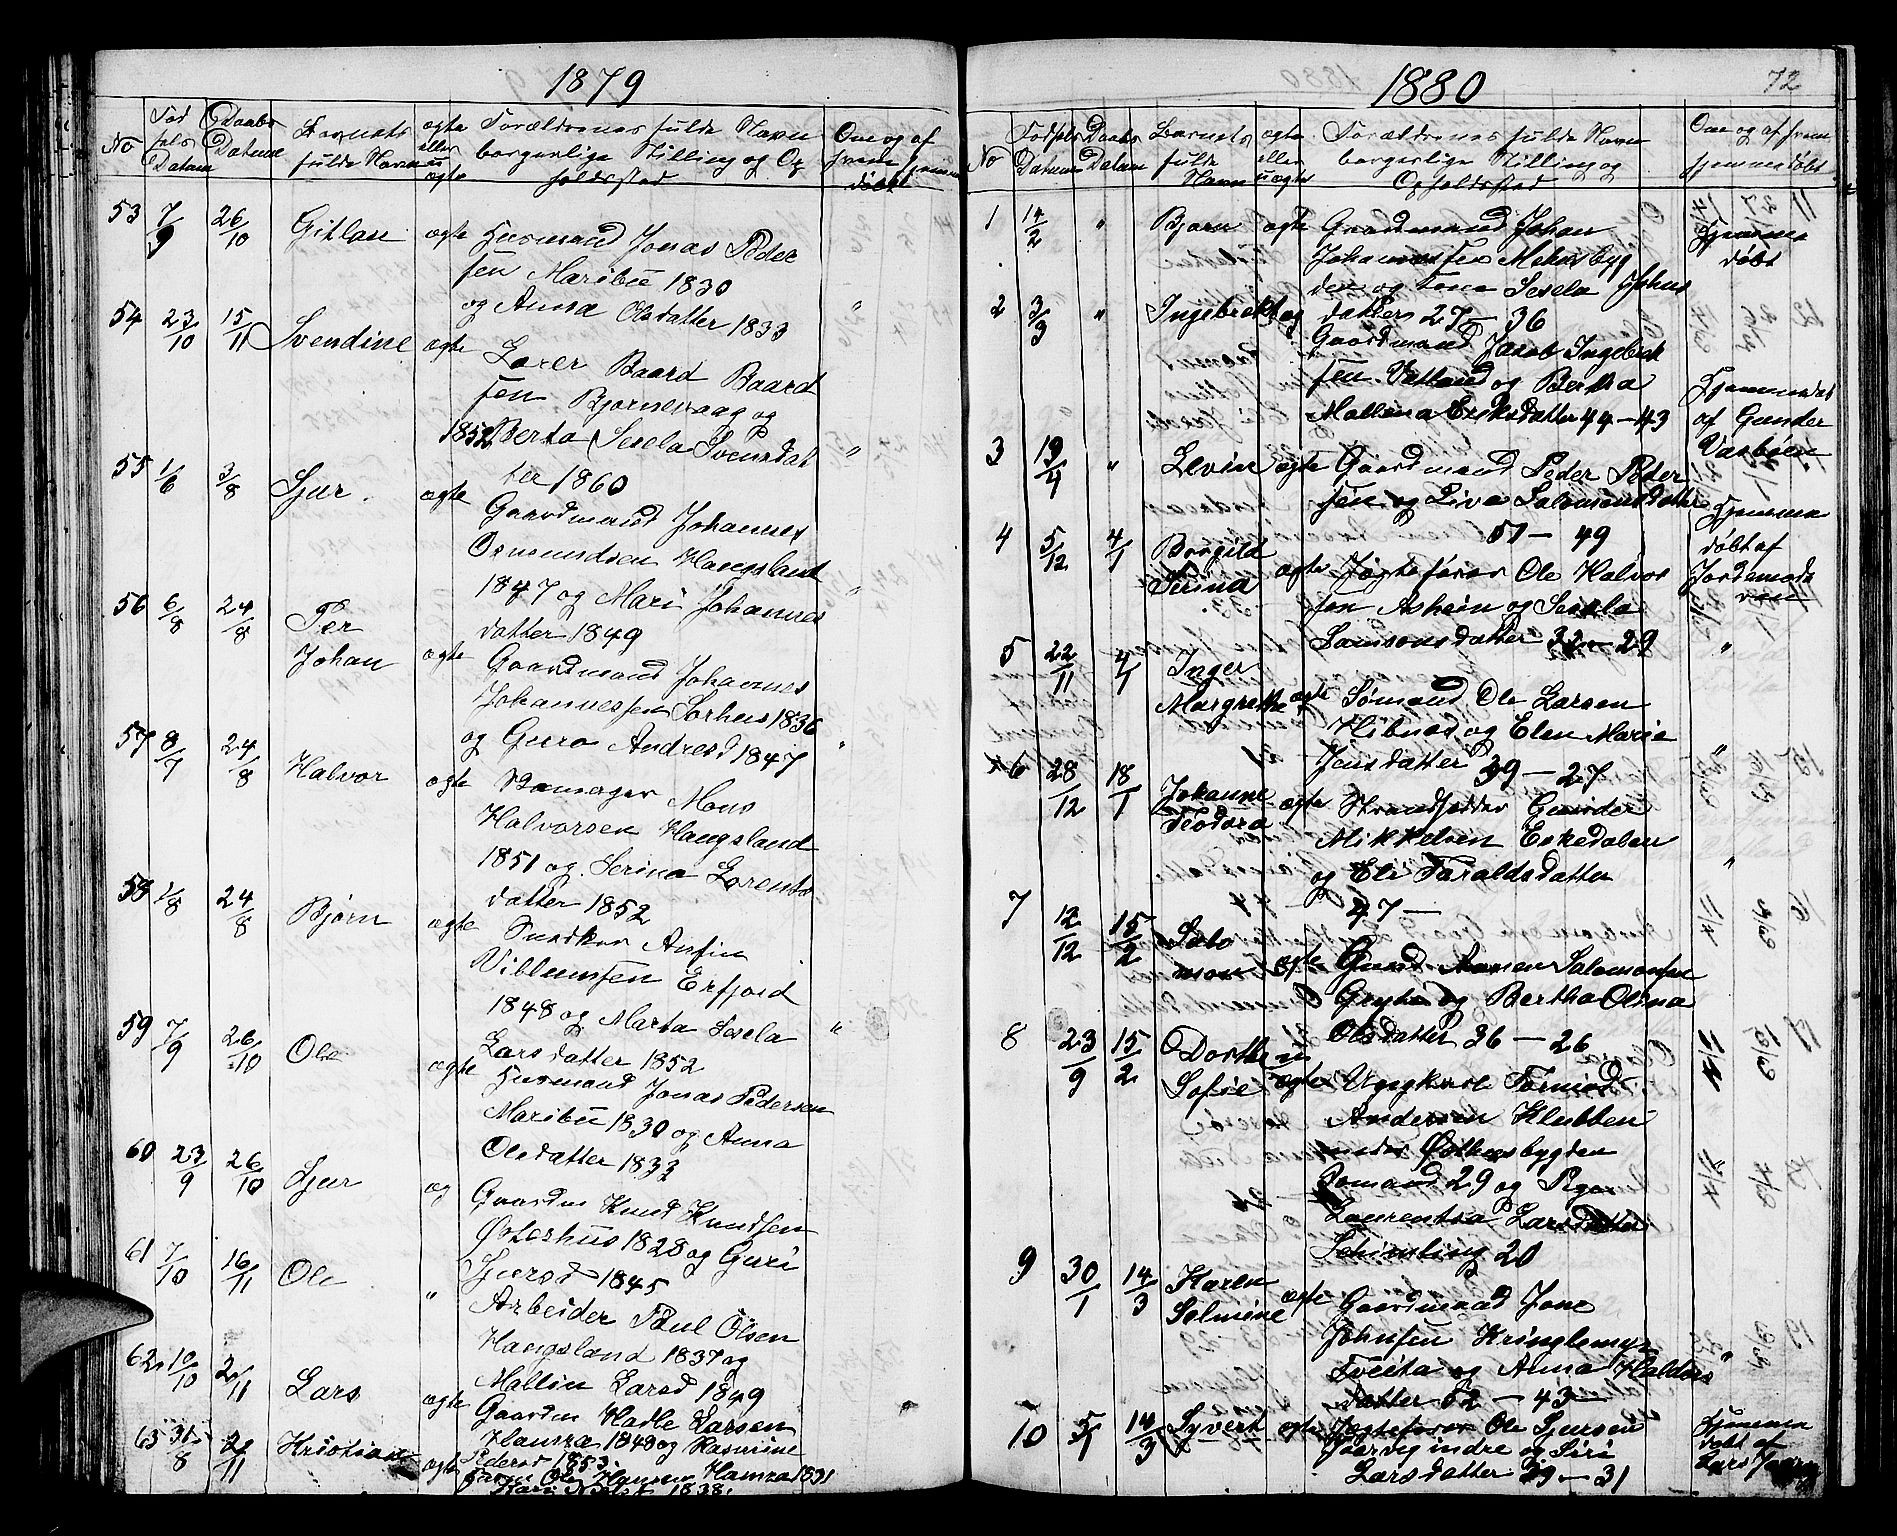 1879
No
Fød
sels
Datum
Daabs
Datum
Barnets
fulde Navn
ægte
eller
uægte
Forældrenes fulde Navn
borgerlige Stilling og Op
holdssted
Om og af
hvem hjemme
døbt
53 7/9 26/10 Gitlau ægte Husmand Jonas Peder
sen Maribu 1830
og Anna Olsdatter 1833 "
54 23/10 15/11 Svendine ægte
Lærer Baard Baard
sen Bjornevaag og
1852 Berta Sesela Svensdat "
ter 1860
55 1/6 3/8 Sjur. ægte
Gaardmand Johannes
Osmundsen Haugsland
1847 og Mari Johannes "
datter 1849
56 6/8 24/8 Per
Johan ægte
Gaardmand Johannes
Johannessen Sørhus 1836
og Guro Andresd 1847 "
57 8/7 24/8 Halvor ægte
Mons
Halvorsen Haugsland
1851 og Serina Lorents
datter 1852
58 1/8 24/8 Bjørn ægte
Snedker Anfin
Villumsen Erfjord
1848 og Marta Sesela "
Larsdatter 1852
59 7/9 26/10 Ole ægte
Husmand Jonas Pedersen
Maribu 1830 og Anna
Olsdatter 1833
60 23/9 26/10 Sjur æg
Gaardm Knud Knudsen
Østerhus 1828 og Guri
Sjursd 1845
61 7/10 16/11 Ole "
Arbeider Paul Olsen
Haugsland 1837 og
Mallin Larsd 1849
62 10/10 2/11 Lars ægte
Gaardm Hadle Larsen
Hamra 1848 og Rasmine
Pedersd 1853
63 31/8 2/11 Kristiane ægte
Ole Hansen Hamra 1831
1838.
1880
72
No
Fødsels
Datum
Daabs
Datum
Barnets
fulde
Navn
ægte
eller
uægte
Forældrenes fulde Navn
borgerlige Stilling og
Opholdssted
Om og af hvem
hjemmedøbt
1 14/2 " Bjørn ægte Gaardmand Johan
Johannessen Mehusbyg
den og Kone Sesela Johns
datter 27 – 36
Hjemme
døbt
2 3/3 " Ingebrekt æg
Gaardmand Jakob Ingebrek
sen Vatland og Berta
Mallena Eriksdatter 44 – 43
Hjemmedøbt
af Gunder
Vasbøen
3 19/4 " Levine ægte Gaardmand Peder Peder
sen og Liva Salomonsdatter
51 – 49
Hjemme
døbt af
Jordemode
ren
4 5/12 4/1 Borgild
Serina ægte Jægtefører Ole Halvor
sen Asheim og Sesela
Samsonsdatter 32 – 29 "
5 22/11 4/1 Inger
Margrethe ægte Sømand Ole Larsen
Hibnes og Elen Marie
Jensdatter 39 – 27 "
6 28/12 18/1 Johanne
Teodora ægte Strandsidder Gunder
Mikkelsen Eskedalen
og Eli Taraldsdatter "
47 –
7 12/12 15/2 Salo
mon ægte Gmd Aamen Salomonsen
Gryte og Bertha Olina
Olsdatter 36 – 26
8 23/9 15/2 Dorthea
Sofie ægte Ugegkarl Tormod
Andersen Klubben
under Østhusbygden
29 og Pigen
Laurentsa Larsdatter
Schimling 20
9 30/1 14/3 Karen
Solmine ægte Gaardmand Jone
Johnsen Kringlemyr
Tveita og Anna Haldors "
datter 52 – 43
10 5/1 14/3 Syvert ægte Jægtefører Ole Sjursen
Jøsrvig indre og Siri
Larsdatter 39 – 31
Hjemme
døbt af
Lars